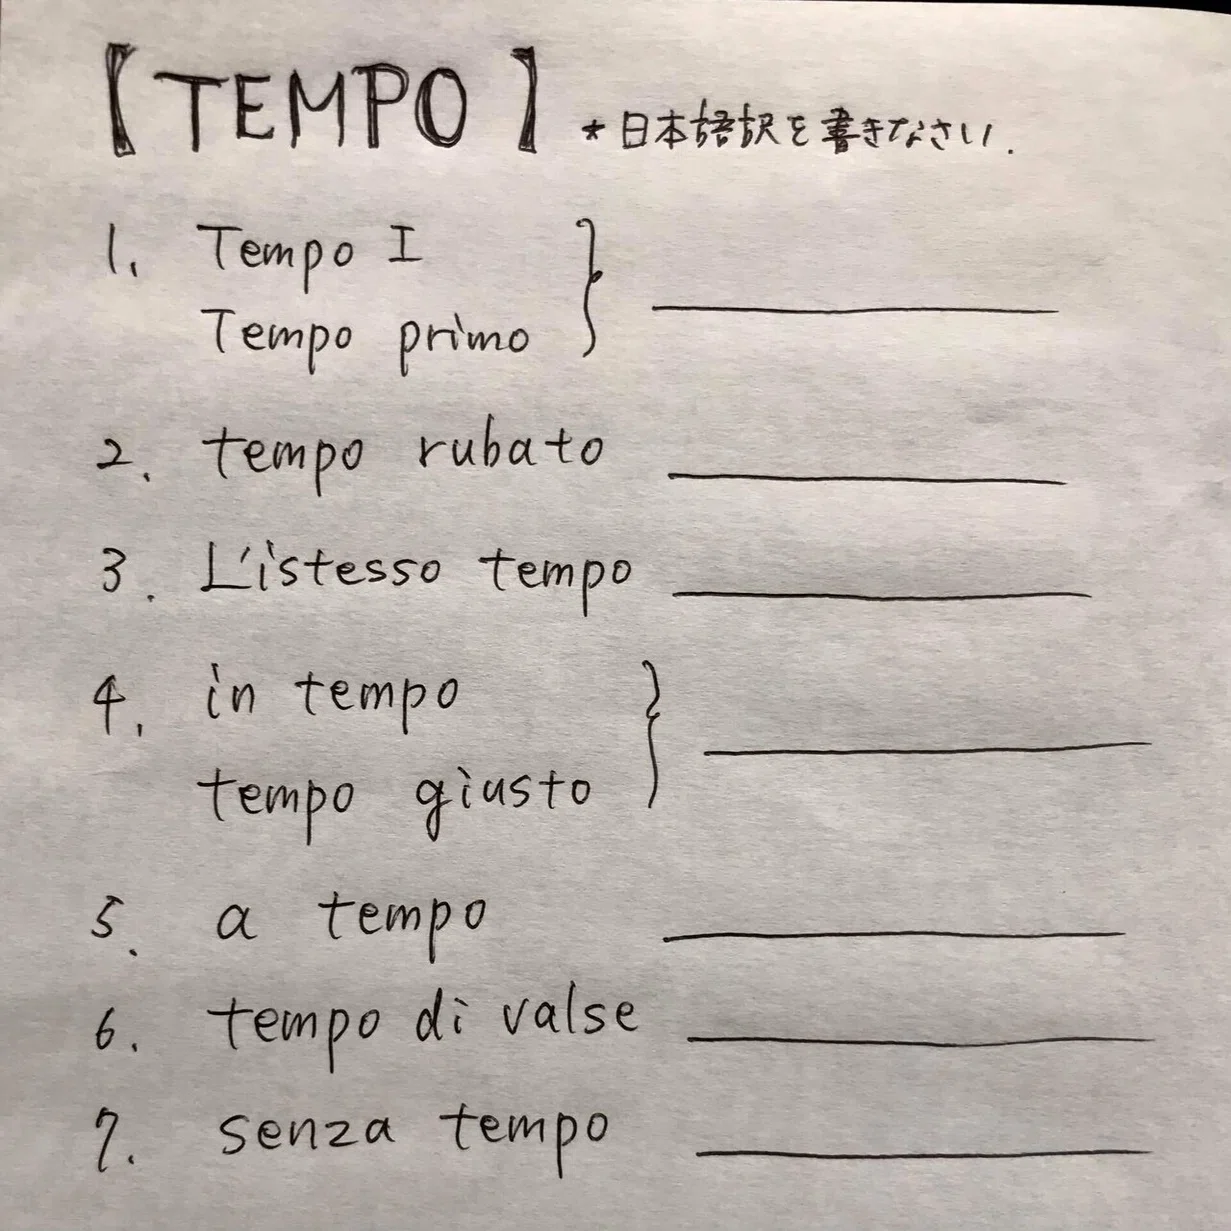 【TEMPO】 *日本語訳を書きなさい.
1. Tempo I
Tempo primo
2. tempo rubato
3. L'istesso tempo
4. in tempo
tempo giusto
5. a tempo
6. tempo di valse
7. senza tempo